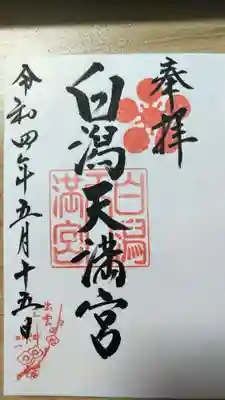 奉拝
白潟天満宮
白潟
天
満宮
令和四年五月十五日